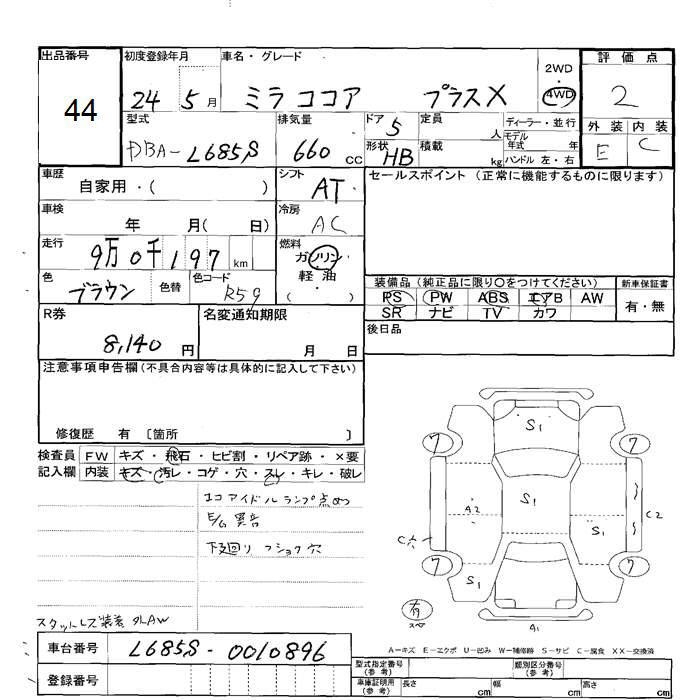 出品番号 初度登録年月 車名・グレード 2WD・4WD 評価点
44 24 5月 ミラココア プラスX 2
型式 排気量 ドア 5 定員 人 ディーラー・並行 外装 内装
DBA-L685S 660 CC 形状 HB 積載 kg モデル年式 年 ハンドル 左・右 E C
車歴 シフト セールスポイント (正常に機能するものに限ります)
自家用・( ) AT
車検 冷房
年 月( 日) AC
走行 燃料
9万0千197 km ガソリン・軽油 ( )
色 色替 色コード 装備品 (純正品に限り○をつけてください) 新車保証書
ブラウン R59 PS PW ABS エアB AW 有・無
SR ナビ TV カワ
R券 名変通知期限 後日品
8,140 円 月 日
注意事項申告欄 (不具合内容等は具体的に記入して下さい)
修復歴 有 〔箇所 〕
検査員 FW キズ・飛石・ヒビ割・リペア跡・×要
記入欄 内装 キズ・汚レ・コゲ・穴・スレ・キレ・破レ
エコアイドルランプ点め
E/G異音
下廻り フショク穴
スタットレス装着 外AW
S1
7 7
A2 S1 S1 C2
C穴
7 7
S1
有
スペア A1
A-キズ E-エクボ U-凹み W-補修跡 S-サビ C-腐食 XX-交換済
車台番号 L685S-0010896
登録番号
型式指定番号 (参考) 類別区分番号 (参考)
車庫証明用 (参考) 長さ cm 幅 cm 高さ cm